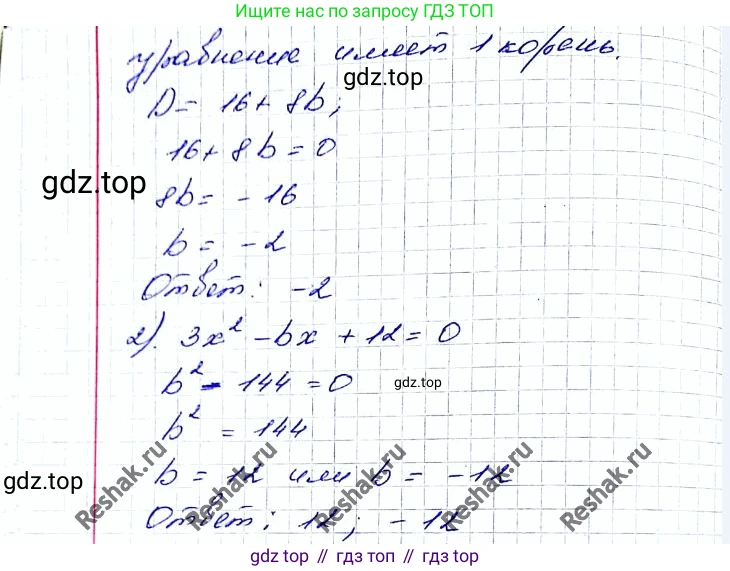 Ищите нас по запросу ГДЗ ТОП
уравнение имеет 1 корень.
gdz.top
D = 16 + 8b;
16 + 8b = 0
gdz.top
8b = - 16
b = - 2
Ответ: -2
2). 3x² - bx + 12 = 0
b² - 144 = 0
gdz.top
b² = 144
gdz.top
b = 12 или b = -12
Ответ: 12; -12
Reshak.ru
Reshak.ru
Reshak.ru
Reshak.ru
gdz top // гдз топ // gdz top